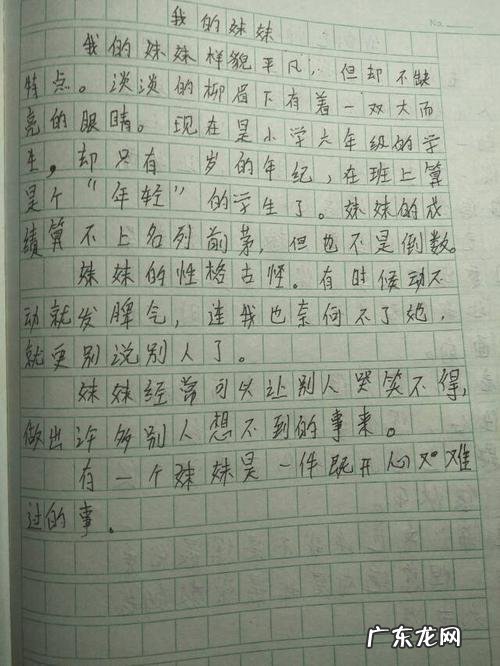 我的妹妹
No.
我的妹妹样貌平凡，但却不缺
特点。淡淡的柳眉下有着一双大而
亮的眼睛。现在是小学六年级的学
生，却只有 岁的年纪，在班上算
是个“年轻”的学生了。妹妹的成
绩算不上名列前茅，但也不是倒数。
妹妹的性格古怪。有时候动不
动就发脾气，连我也奈何不了她，
就更别说别人了。
妹妹经常可以让别人哭笑不得，
做出许多别人想不到的事来。
有一个妹妹是一件既开心又难
过的事。
广东龙网